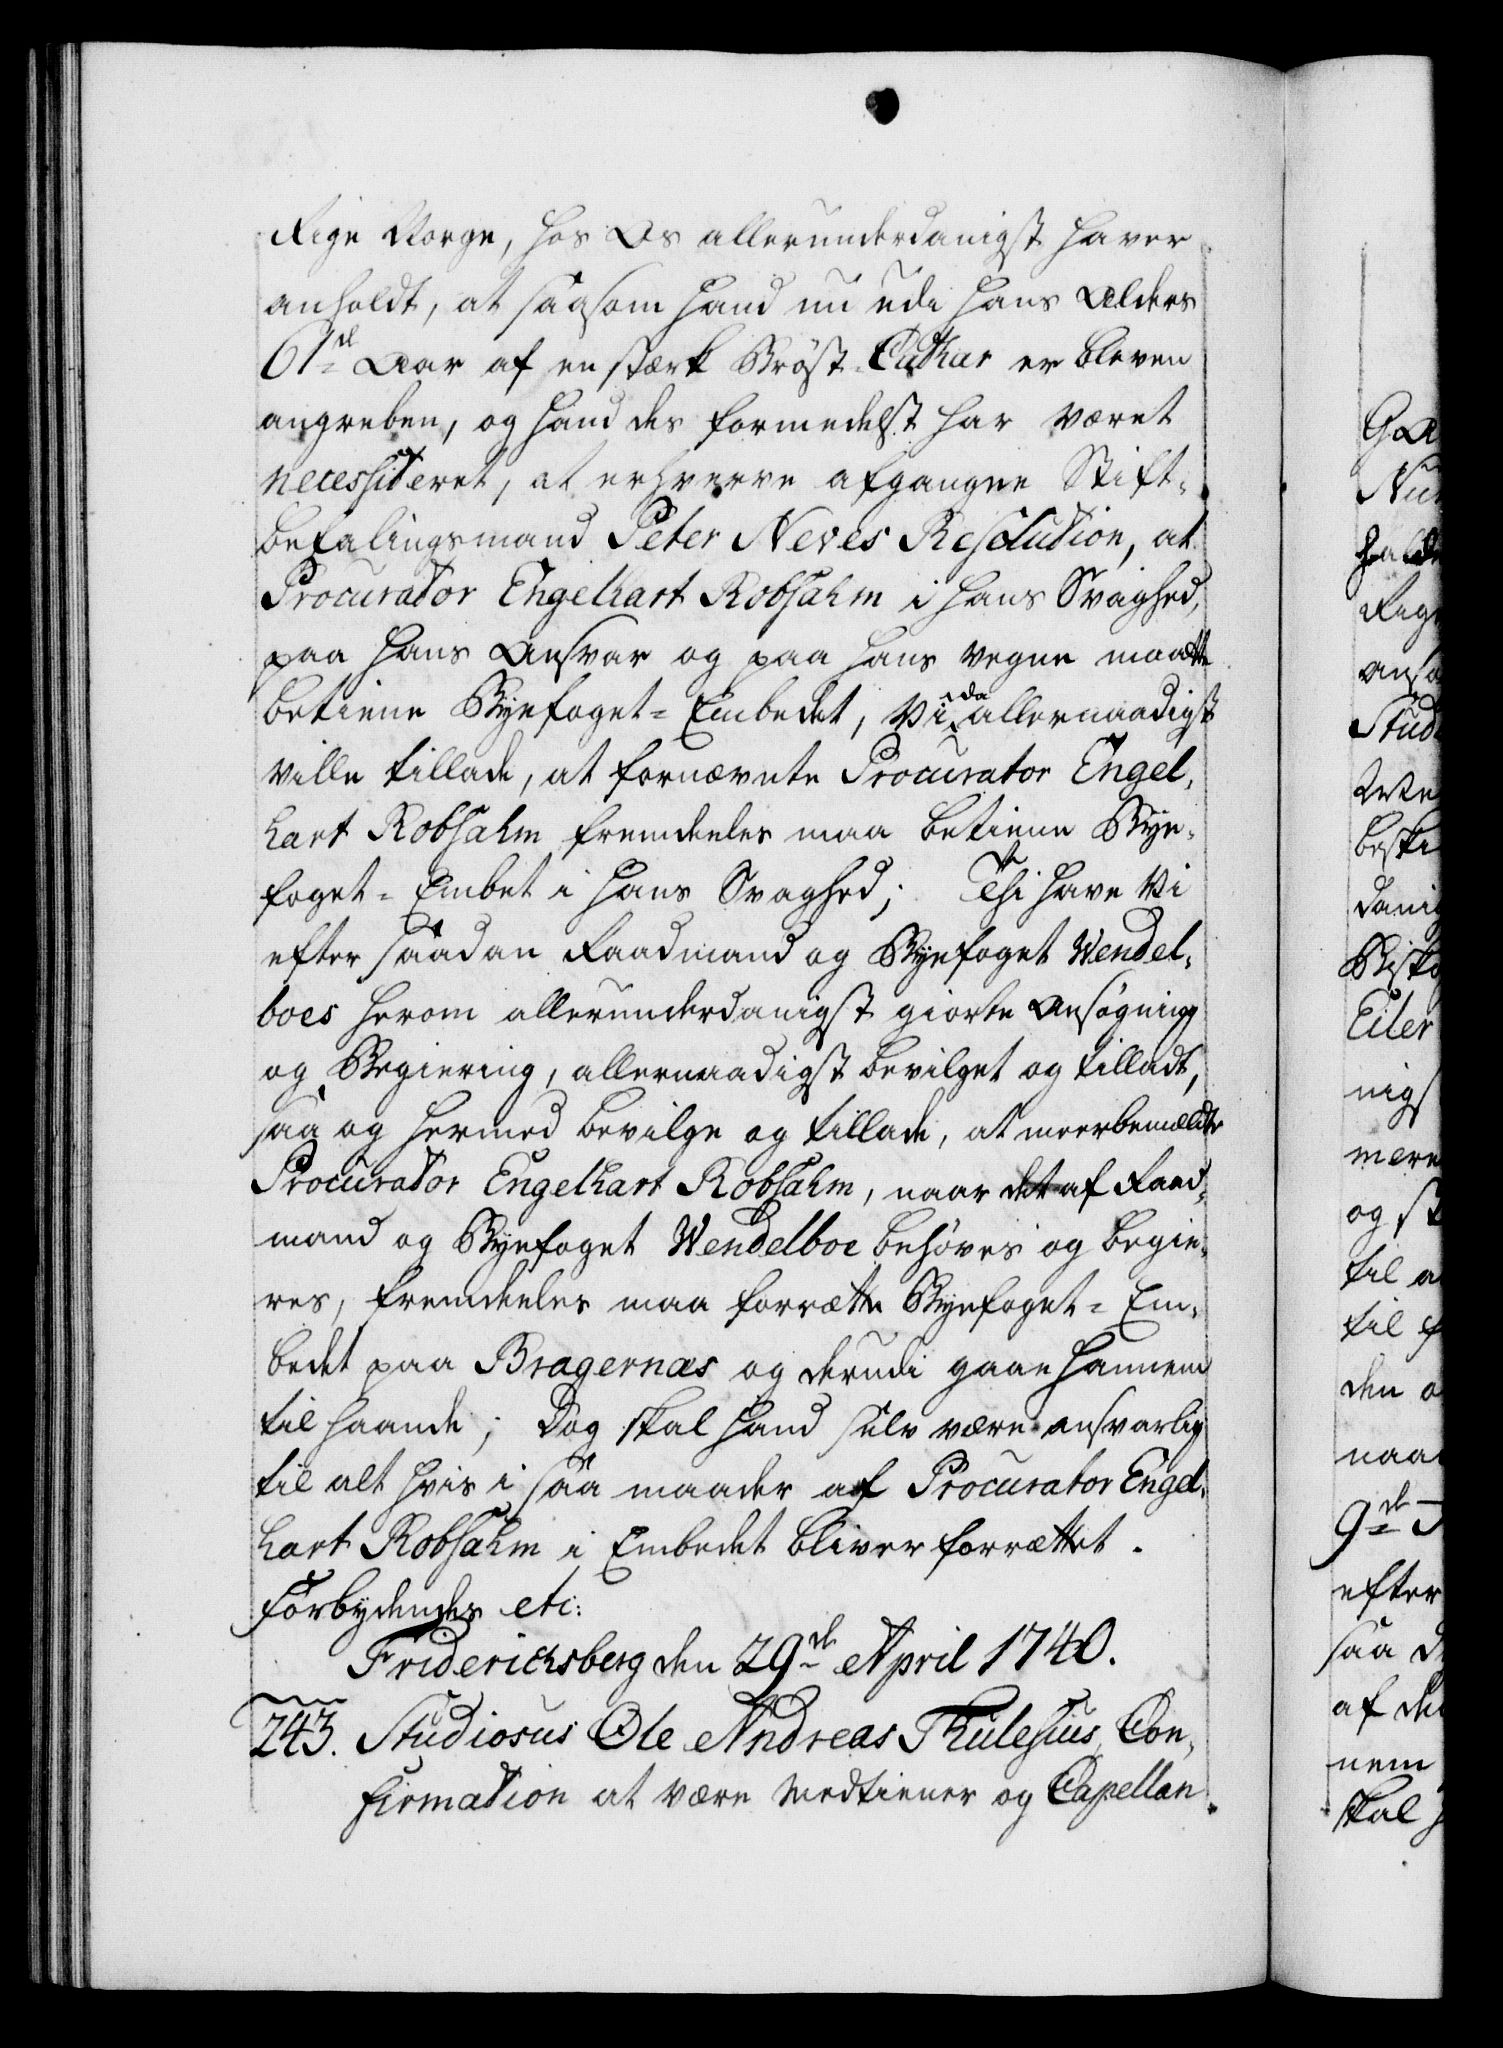 Rige Norge, hos Os allerunderdanigst haver
anholdt, at saasom hand nu udi hans Alders
61de Aar af en stærk Bröst-Cathar er bleven
angreben, og hand des formedelst har været
necessiteret, at erhverve afgangne Stift-
befalingsmand Peter Neves Resolution, at
Procurator Engelhart Robsahm i hans Svaghed,
paa hans Ansvar og paa hans vegne maatte
betiene Byefoget-Embedet, Vi da allernaadigst
ville tillade, at fornævnte Procurator Engel-
hart Robsahm fremdeeles maa betiene Bye-
foget-Embet i hans Svaghed; Thi have Vi
efter saadan Raadmand og Byefoget Wendel-
boes herom allerunderdanigst giorte Ansøgning
og Begiering, allernaadigst bevilget og tilladt,
saa og hermed bevilge og tillade, at meerbemældte
Procurator Engelhart Robsahm, naar det af Raad-
mand og Byefoget Wendelboe behöves og begie-
res, fremdeeles maa forrætte Byefoget-Em-
bedet paa Bragernæs og derudi gaae hannem
til haande; Dog skal hand selv være ansvarlig
til alt hvis i saa maader af Procurator Engel-
hart Robsahm i Embedet bliver forrættet.
Forbydendes etc:
Friderichsberg den 29de April 1740.
243. Studiosus Ole Andreas Thulesius Con-
firmation at være Medtiener og Capellan